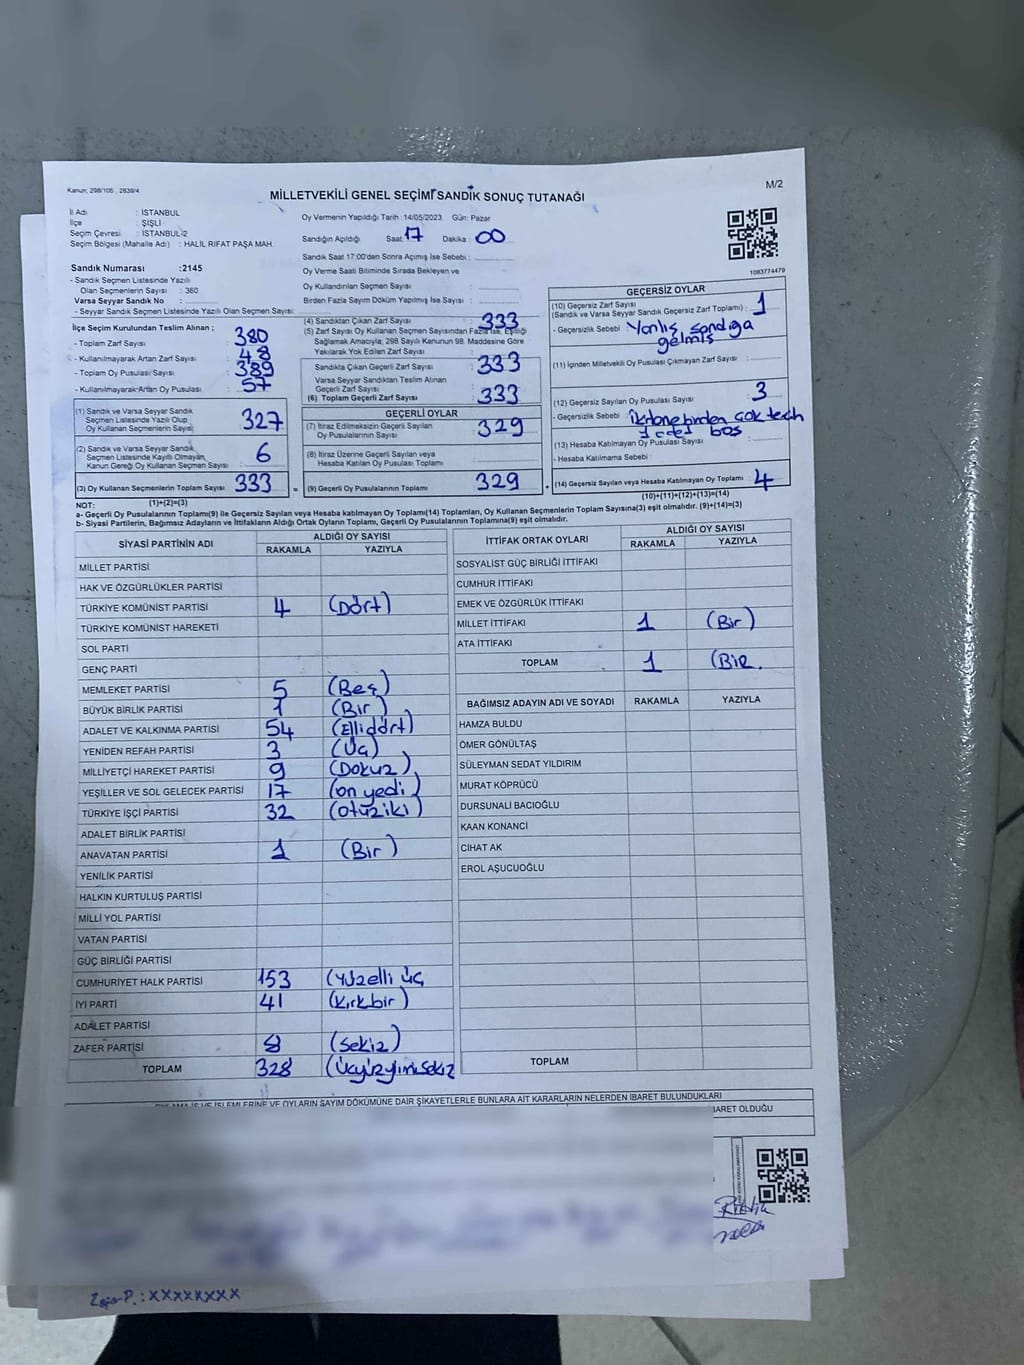 Kanun; 298/105 , 2839/4
MİLLETVEKİLİ GENEL SEÇİMİ SANDIK SONUÇ TUTANAĞI
M/2
İl Adı : İSTANBUL
İlçe : ŞİŞLİ
Seçim Çevresi : İSTANBUL-2
Seçim Bölgesi (Mahalle Adı) : HALİL RIFAT PAŞA MAH.
Oy Vermenin Yapıldığı Tarih :14/05/2023 Gün: Pazar
Sandığın Açıldığı Saat: 17 Dakika : 00
Sandık Saat 17:00'den Sonra Açımış İse Sebebi :
Oy Verme Saati Bitiminde Sırada Bekleyen ve
Oy Kullandırılan Seçmen Sayısı :
Birden Fazla Sayım Döküm Yapılmış İse Sayısı :
1083774479
Sandık Numarası :2145
- Sandık Seçmen Listesinde Yazılı
Olan Seçmenlerin Sayısı : 360
Varsa Seyyar Sandık No :
- Seyyar Sandık Seçmen Listesinde Yazılı Olan Seçmen Sayısı:
İlçe Seçim Kurulundan Teslim Alınan ;
- Toplam Zarf Sayısı : 380
- Kullanılmayarak Artan Zarf Sayısı : 48
- Toplam Oy Pusulası Sayısı : 389
- Kullanılmayarak Artan Oy Pusulası : 57
(1) Sandık ve Varsa Seyyar Sandık
Seçmen Listesinde Yazılı Olup
Oy Kullanan Seçmenlerin Sayısı : 327
(2) Sandık ve Varsa Seyyar Sandık
Seçmen Listesinde Kayıtlı Olmayan
Kanun Gereği Oy Kullanan Seçmen Sayısı : 6
(3) Oy Kullanan Seçmenlerin Toplam Sayısı : 333
(1)+(2)=(3)
(4) Sandıktan Çıkan Zarf Sayısı : 333
(5) Zarf Sayısı Oy Kullanan Seçmen Sayısından Fazla İse, Eşitliği
Sağlamak Amacıyla, 298 Sayılı Kanunun 98. Maddesine Göre
Yakılarak Yok Edilen Zarf Sayısı :
Sandıkta Çıkan Geçerli Zarf Sayısı : 333
Varsa Seyyar Sandıktan Teslim Alınan
Geçerli Zarf Sayısı :
(6) Toplam Geçerli Zarf Sayısı : 333
GEÇERLİ OYLAR
(7) İtiraz Edilmeksizin Geçerli Sayılan
Oy Pusulalarının Sayısı : 329
(8) İtiraz Üzerine Geçerli Sayılan veya
Hesaba Katılan Oy Pusulası Toplamı :
(9) Geçerli Oy Pusulalarının Toplamı : 329
GEÇERSİZ OYLAR
(10) Geçersiz Zarf Sayısı
(Sandık ve Varsa Seyyar Sandık Geçersiz Zarf Toplamı) : 1
- Geçersizlik Sebebi : Yanlış sandığa
gelmiş
(11) İçinden Milletvekili Oy Pusulası Çıkmayan Zarf Sayısı :
(12) Geçersiz Sayılan Oy Pusulası Sayısı : 3
- Geçersizlik Sebebi :
1 adet boş
(13) Hesaba Katılmayan Oy Pusulası Sayısı :
- Hesaba Katılmama Sebebi :
(14) Geçersiz Sayılan veya Hesaba Katılmayan Oy Toplamı : 4
(10)+(11)+(12)+(13)=(14)
NOT:
a- Geçerli Oy Pusulalarının Toplamı(9) ile Geçersiz Sayılan veya Hesaba katılmayan Oy Toplamı(14) Toplamları, Oy Kullanan Seçmenlerin Toplam Sayısına(3) eşit olmalıdır. (9)+(14)=(3)
b- Siyasi Partilerin, Bağımsız Adayların ve İttifakların Aldığı Ortak Oyların Toplamı, Geçerli Oy Pusulalarının Toplamına(9) eşit olmalıdır.
SİYASİ PARTİNİN ADI ALDIĞI OY SAYISI
RAKAMLA YAZIYLA
MİLLET PARTİSİ
HAK VE ÖZGÜRLÜKLER PARTİSİ
TÜRKİYE KOMÜNİST PARTİSİ 4 (Dört)
TÜRKİYE KOMÜNİST HAREKETİ
SOL PARTİ
GENÇ PARTİ
MEMLEKET PARTİSİ 5 (Beş)
BÜYÜK BİRLİK PARTİSİ 1 (Bir)
ADALET VE KALKINMA PARTİSİ 54 (Ellidört)
YENİDEN REFAH PARTİSİ 3 (Üç)
MİLLİYETÇİ HAREKET PARTİSİ 9 (Dokuz)
YEŞİLLER VE SOL GELECEK PARTİSİ 17 (on yedi)
TÜRKİYE İŞÇİ PARTİSİ 32 (otuziki)
ADALET BİRLİK PARTİSİ
ANAVATAN PARTİSİ 1 (Bir)
YENİLİK PARTİSİ
HALKIN KURTULUŞ PARTİSİ
MİLLİ YOL PARTİSİ
VATAN PARTİSİ
GÜÇ BİRLİĞİ PARTİSİ
CUMHURİYET HALK PARTİSİ 153 (Yüzelli üç
İYİ PARTİ 41 (Kırkbir)
ADALET PARTİSİ
ZAFER PARTİSİ 8 (Sekiz)
TOPLAM 328 (Üçyüzyirmisekiz
İTTİFAK ORTAK OYLARI ALDIĞI OY SAYISI
RAKAMLA YAZIYLA
SOSYALİST GÜÇ BİRLİĞİ İTTİFAKI
CUMHUR İTTİFAKI
EMEK VE ÖZGÜRLÜK İTTİFAKI
MİLLET İTTİFAKI 1 (Bir)
ATA İTTİFAKI
TOPLAM 1 (Bir.
BAĞIMSIZ ADAYIN ADI VE SOYADI RAKAMLA YAZIYLA
HAMZA BULDU
ÖMER GÖNÜLTAŞ
SÜLEYMAN SEDAT YILDIRIM
MURAT KÖPRÜCÜ
DURSUNALİ BACIOĞLU
KAAN KONANCİ
CİHAT AK
EROL AŞUCUOĞLU
TOPLAM
OYLAMA İŞ VE İŞLEMLERİNE VE OYLARIN SAYIM DÖKÜMÜNE DAİR ŞİKAYETLERLE BUNLARA AİT KARARLARIN NELERDEN İBARET BULUNDUKLARI
BARET OLDUĞU
Zafer P. : XXXXXXXX